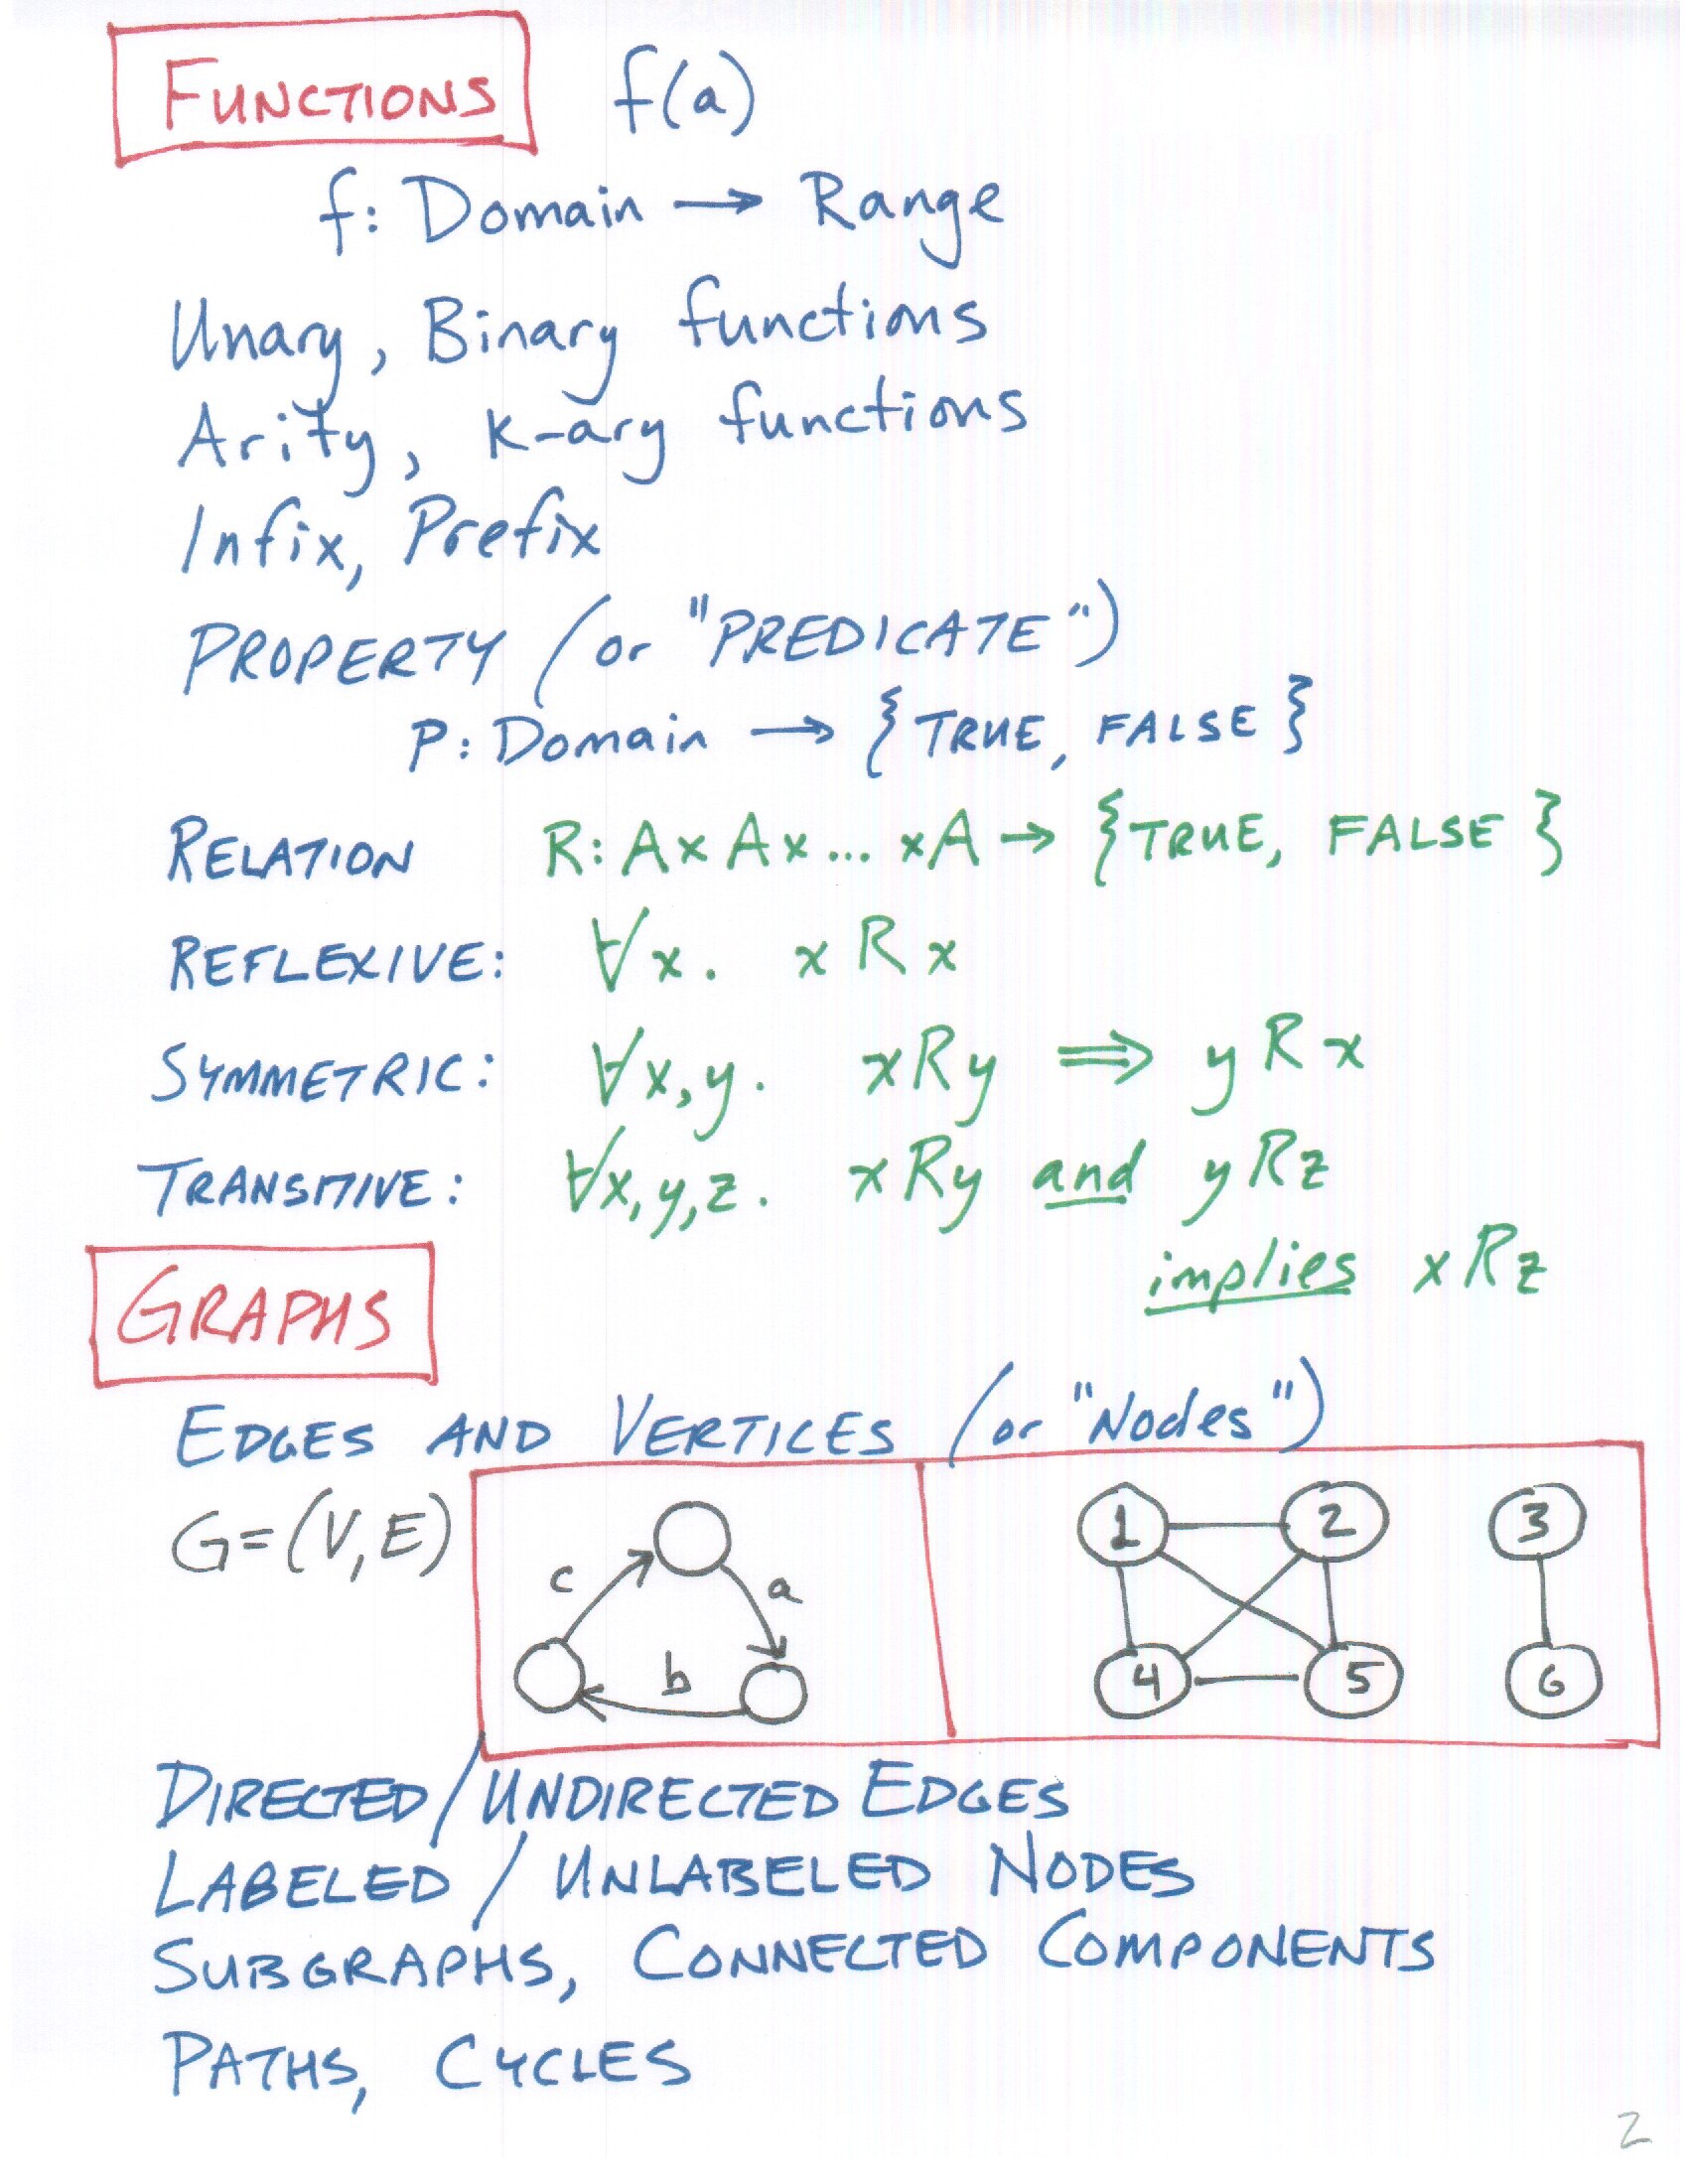 FUNCTIONS f(a)
f: Domain → Range
Unary, Binary functions
Arity, K-ary functions
Infix, Prefix
PROPERTY (or "PREDICATE")
P: Domain → {TRUE, FALSE}
RELATION R: A x A x ... x A → {TRUE, FALSE}
REFLEXIVE: ∀x. x R x
SYMMETRIC: ∀x,y. xRy ⟹ y R x
TRANSITIVE: ∀x,y,z. xRy and yRz
implies xRz
GRAPHS
EDGES AND VERTICES (or "Nodes")
G=(V,E)
c a
b
1 2 3
4 5 6
DIRECTED/UNDIRECTED EDGES
LABELED/UNLABELED NODES
SUBGRAPHS, CONNECTED COMPONENTS
PATHS, CYCLES
2